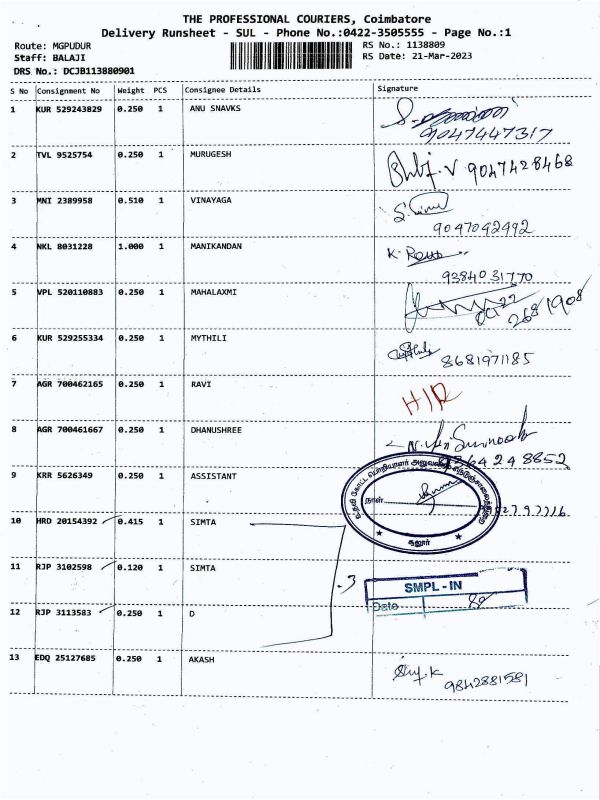 THE PROFESSIONAL COURIERS, Coimbatore
Delivery Runsheet - SUL - Phone No.:0422-3505555 - Page No.:1
Route: MGPUDUR
RS No.: 1138809
Staff: BALAJI
RS Date: 21-Mar-2023
DRS No.: DCJB113880901
S No Consignment No Weight PCS Consignee Details Signature
1 KUR 529243829 0.250 1 ANU SNAVKS
9047447317
2 TVL 9525754 0.250 1 MURUGESH 9047428468
3 MNI 2389958 0.510 1 VINAYAGA
9047092492
4 NKL 8031228 1.000 1 MANIKANDAN
9384031770
5 VPL 520110883 0.250 1 MAHALAXMI
6 KUR 529255334 0.250 1 MYTHILI
8681971185
7 AGR 700462165 0.250 1 RAVI
8 AGR 700461667 0.250 1 DHANUSHREE
9 KRR 5626349 0.250 1 ASSISTANT
நாள்
சூலூர்
10 HRD 20154392 0.415 1 SIMTA
11 RJP 3102598 0.120 1 SIMTA
SMPL-IN
Date
12 RJP 3113583 0.250 1 D
13 EDQ 25127685 0.250 1 AKASH
9842881581